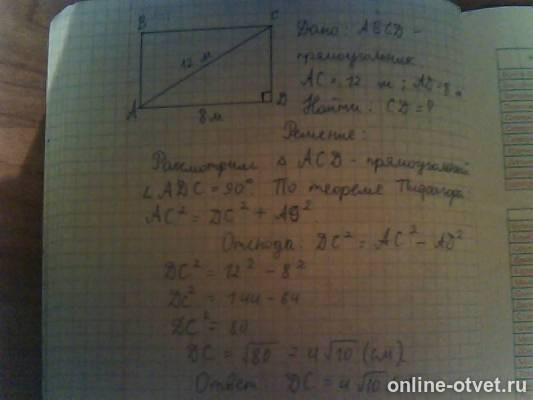 B
C
12 м
A
D
8 м
Дано: ABCD -
прямоугольник
AC = 12 м; AD = 8 м
Найти: CD = ?
Решение:
Рассмотрим △ ACD - прямоугольный
∠ADC = 90°. По теореме Пифагора:
AC² = DC² + AD²
Отсюда: DC² = AC² - AD²
DC² = 12² - 8²
DC² = 144 - 64
DC² = 80
DC = √80 = 4√10 (см)
Ответ: DC = 4√10
online-otvet.ru